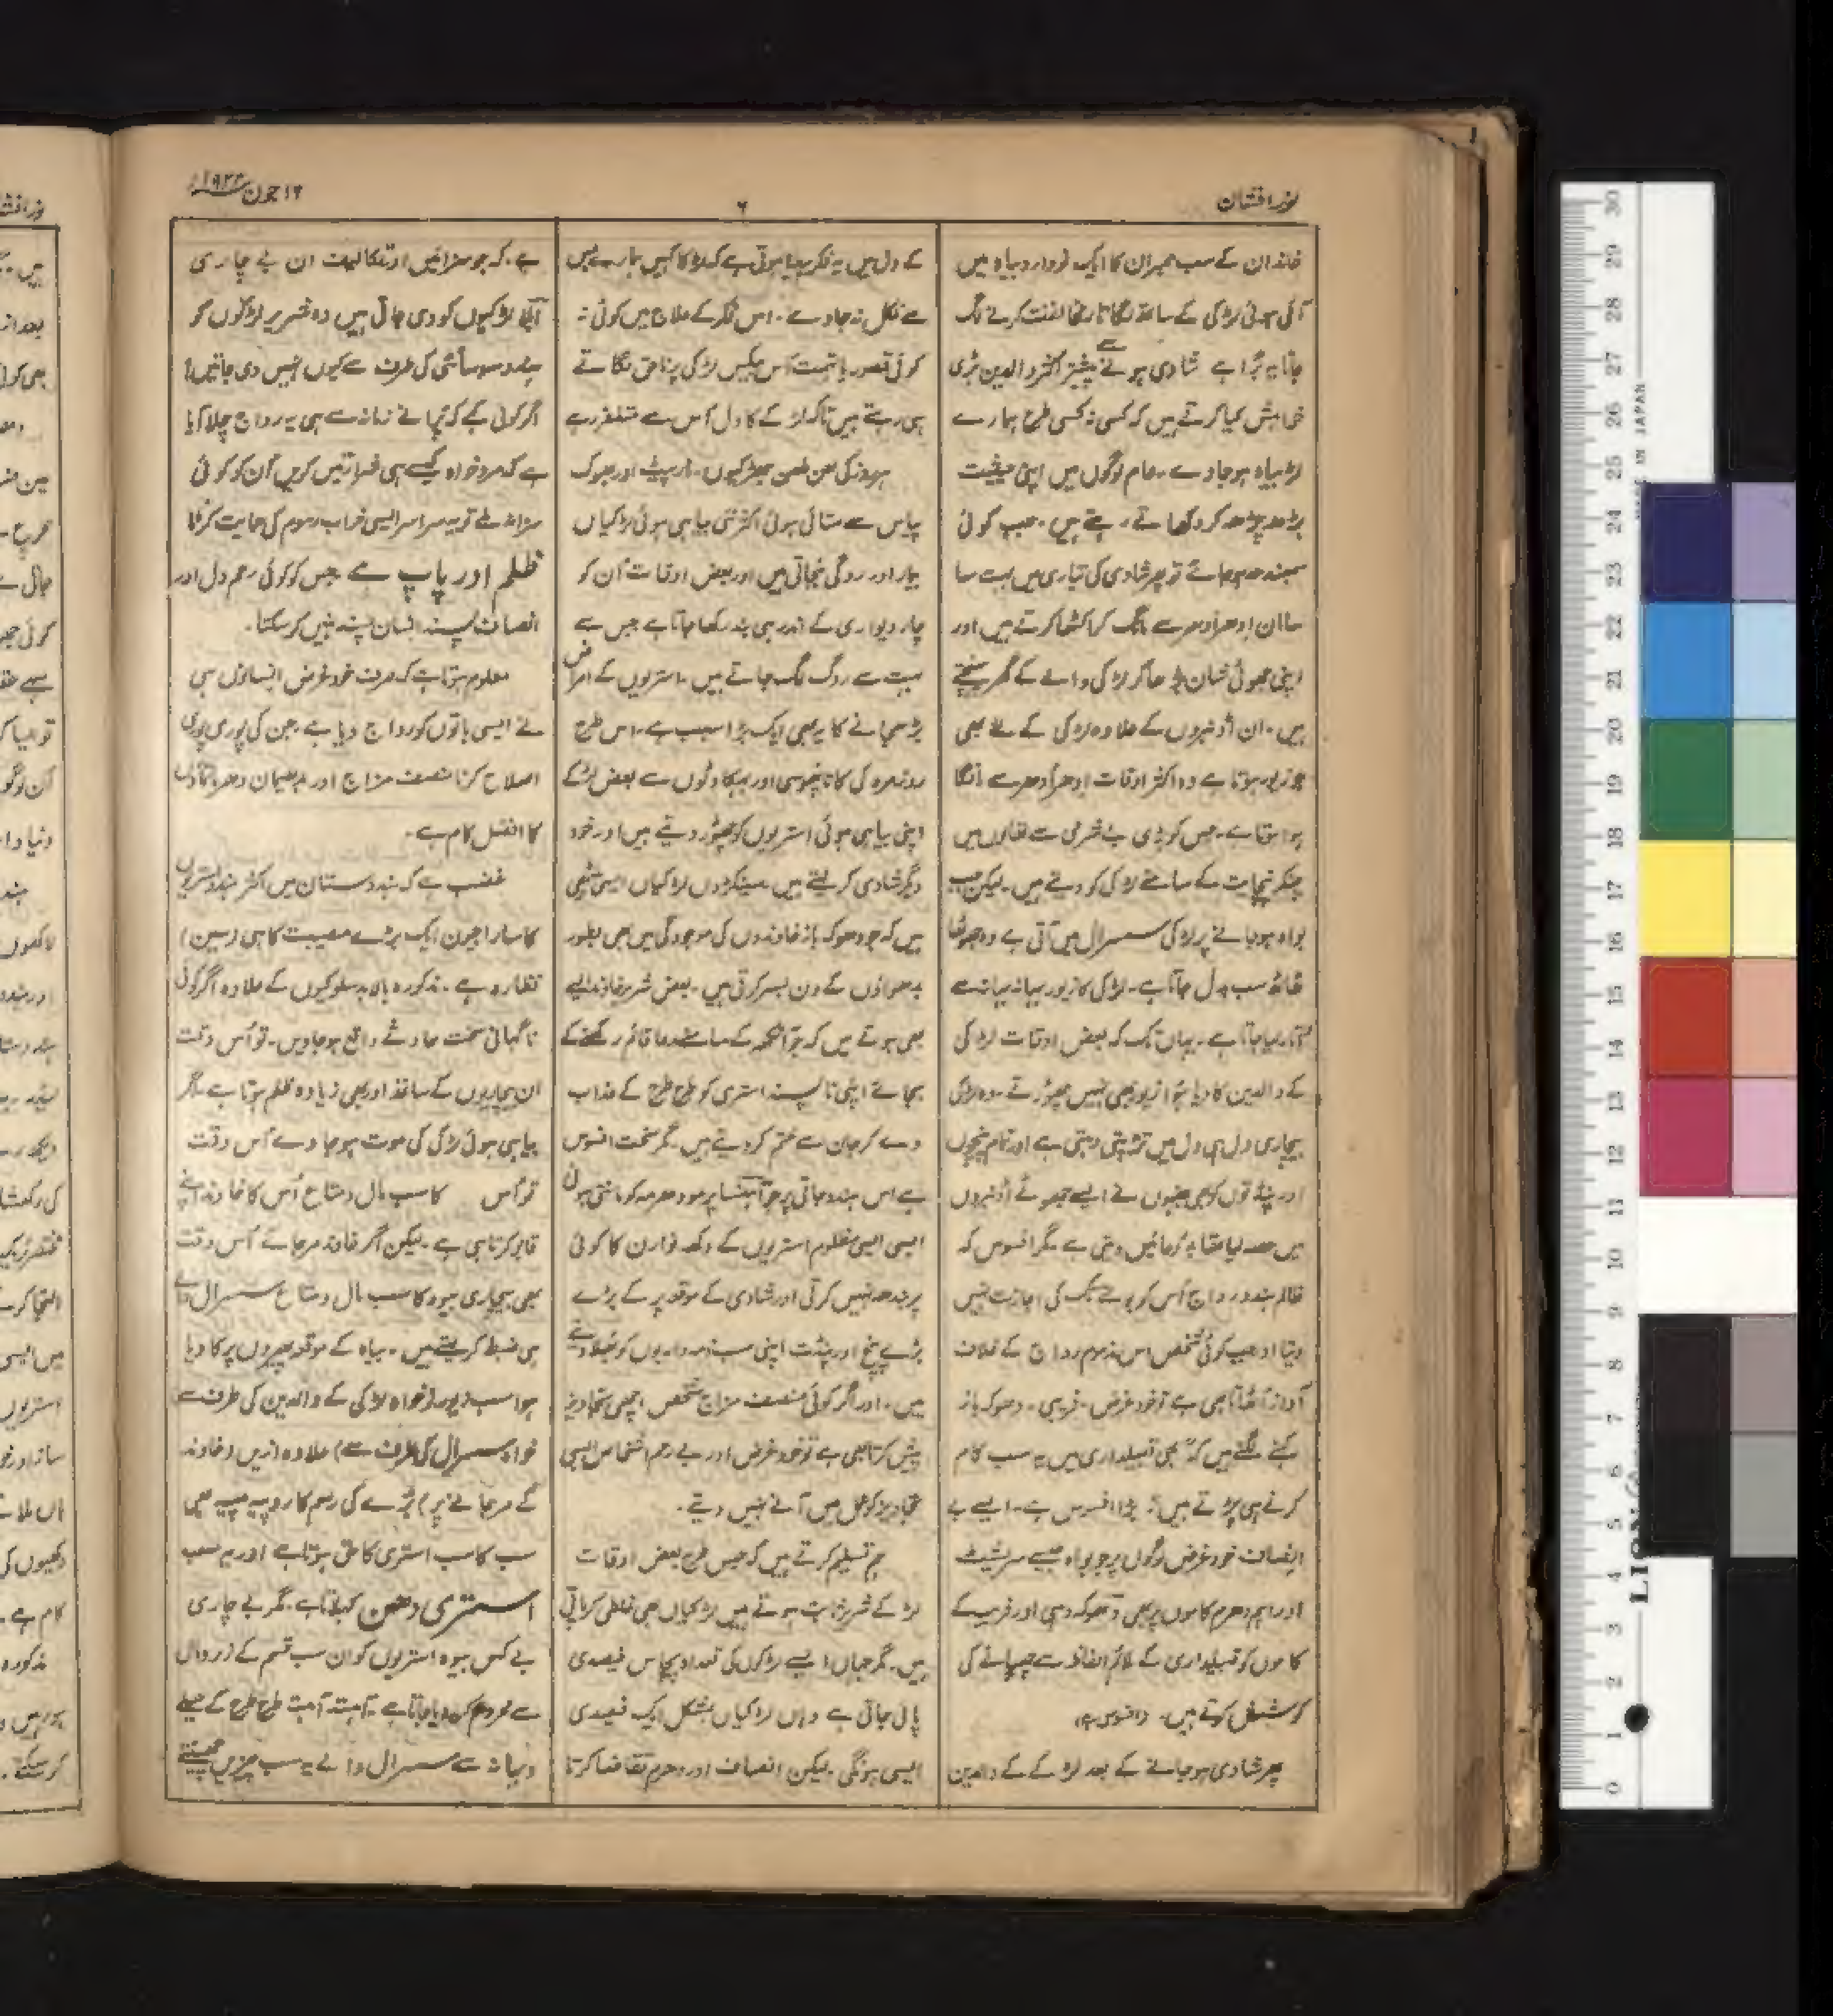 نور افشان
۶
۱۶ جون ۱۹۲۲ء
خاندان کے سب ممبران کا ایک نووارد بیاہ میں
آئی ہوئی لڑکی کے ساتھ لگاتار مخالفت کرنے لگ
جانا برا ہے شادی ہونے سے پیشتر اکثر والدین بڑی
خواہش کیا کرتے ہیں کہ کسی نہ کسی طرح ہمارے
لڑ بیاہ ہو جاوے۔ عام لوگوں میں اپنی حیثیت
بڑھ چڑھ کر دکھاتے رہتے ہیں۔ جب کوئی
سمبندھ ہو جائے تو پھر شادی کی تیاری میں بہت سا
سامان ادھر ادھر سے مانگ کر اکٹھا کرتے ہیں اور
اپنی جھوٹی شان بڑھا کر لڑکی والے کے گھر پہنچتے
ہیں۔ ان آڈمبروں کے علاوہ لڑکی کے لئے بھی
جو زیور ہوتا ہے وہ اکثر اوقات ادھر اُدھر سے مانگا
ہوا ہوتا ہے۔ جس کو بڑی بے شرمی سے تھالوں میں
چنکر پنچایت کے سامنے لڑکی کو دیتے ہیں۔ لیکن جب
بواہ ہو جانے پر لڑکی سسرال میں آتی ہے وہ جھوٹھا
ٹھاٹھ سب بدل جاتا ہے۔ لڑکی کا زیور بہانہ بہانہ سے
اُتار لیا جاتا ہے۔ یہاں تک کہ بعض اوقات لڑکی
کے والدین کا دیا ہوا زیور بھی نہیں چھوڑتے۔ وہ لڑکی
بیچاری دل ہی دل میں تڑپتی رہتی ہے اور تمام پنچوں
اور پنڈتوں کو بھی جنہوں نے ایسے جھوٹے آڈنبروں
میں حصہ لیا تھا بددعائیں دیتی ہے۔ مگر افسوس کہ
ظالم ہندو رواج اُس کو بولنے تک کی اجازت نہیں
دیتا اور جب کوئی شخص اس مذموم رواج کے خلاف
آواز اُٹھاتا بھی ہے تو خود غرض۔ فریبی۔ دھوکہ باز
کہنے لگتے ہیں کہ "بھئی قبیلداری میں یہ سب کام
کرنے ہی پڑتے ہیں"۔ بڑا افسوس ہے۔ ایسے بے
انصاف خود غرض لوگوں پر جو بواہ جیسے سریشٹ
اور اہم دھرم کاموں پر بھی دھوکہ دہی اور فریب کے
کاموں کو قبیلداری کے ملائم الفاظ سے چھپانے کی
کوشش کرتے ہیں۔
پھر شادی ہو جانے کے بعد لڑکے کے والدین
کے دل میں یہ فکر پیدا ہوتی ہے کہ لڑکا کہیں ہمارے بس
سے نکل نہ جاوے۔ اس فکر کے علاج میں کوئی نہ
کوئی قصور یا تہمت اُس بیکس لڑکی پر ناحق لگاتے
ہی رہتے ہیں تاکہ لڑکے کا دل اُس سے متنفر رہے
ہر روز کی لعن طعن جھڑکیوں۔ مار پیٹ اور بھوک
پیاس سے ستائی ہوئی اکثر نئی بیاہی ہوئی لڑکیاں
بیمار اور روگی بنجاتی ہیں اور بعض اوقات اُن کو
چار دیواری کے اندر ہی بند رکھا جاتا ہے جس سے
بہت سے روگ لگ جاتے ہیں۔ استریوں کے امراض
بڑھ جانے کا یہ بھی ایک بڑا سبب ہے۔ اس طرح
روزمرہ کی کانا پھوسی اور بہکاوٹوں سے بعض لڑکے
اپنی بیاہی ہوئی استریوں کو چھوڑ دیتے ہیں اور خود
دیگر شادی کر لیتے ہیں۔ سینکڑوں لڑکیاں ایسی بیٹھی
ہیں کہ جو دھوکہ باز خاوندوں کی موجودگی میں بھی بطور
بدھواؤں کے دن بسر کرتی ہیں۔ بعض شریر خاوند ایسے
بھی ہوتے ہیں کہ جو آتما کے سامنے دعا قائم رکھنے کے
بجائے اپنی ناپسند استری کو طرح طرح کے عذاب
دے کر جان سے ختم کر دیتے ہیں۔ مگر سخت افسوس
ہے اس ہندو جاتی پر جو اہنسا پرمو دھرمہ کو مانتی ہوئی
ایسی ایسی مظلوم استریوں کے دکھ نوارن کا کوئی
پربندھ نہیں کرتی اور شادی کے موقعہ پر کے بڑے
بڑے پنچ اور پنڈت اپنی سب ذمہ داریوں کو بھلا دیتے
ہیں۔ اور اگر کوئی منصف مزاج شخص اچھی تجاویز
پیش کرتا بھی ہے تو خود غرض اور بے رحم اشخاص ایسی
تجاویز کو عمل میں آنے نہیں دیتے۔
ہم تسلیم کرتے ہیں کہ جس طرح بعض اوقات
لڑکے شریر ثابت ہوتے ہیں لڑکیاں بھی غلطی کر جاتی
ہیں۔ مگر جہاں ایسے لڑکوں کی تعداد پچاس فیصدی
پائی جاتی ہے وہاں لڑکیاں بمشکل ایک فیصدی
ایسی ہونگی۔ لیکن انصاف اور دھرم تقاضا کرتا
ہے۔ کہ جو سزائیں اور تکالیف ان بے چاری
لڑکیوں کو دی جاتی ہیں وہ شریر لڑکوں کو
ہندو سوسائٹی کی طرف سے کیوں نہیں دی جاتیں؟
اگر کوئی کہے کہ پرانے زمانہ سے ہی یہ رواج چلا آیا
ہے کہ مرد خواہ کیسے ہی شرارتیں کریں اُن کو کوئی
سزا نہ ملے تو یہ سراسر ایسی خراب رسوم کی حمایت کرنا
ظلم اور پاپ ہے جس کو کوئی رحم دل اور
انصاف پسند انسان پسند نہیں کر سکتا۔
معلوم ہوتا ہے کہ صرف خود غرض انسانوں ہی
نے ایسی باتوں کو رواج دیا ہے۔ جن کی پوری پوری
اصلاح کرنا منصف مزاج اور بدھیمان دھرماتماؤں
کا افضل کام ہے۔
غضب ہے کہ ہندوستان میں اکثر ہندو استریوں
کا سارا جیون ایک بڑے مصیبت کا ہی (سین)
نظارہ ہے۔ مذکورہ بالا بدسلوکیوں کے علاوہ اگر کوئی
ناگہانی سخت حادثے واقع ہو جاویں۔ تو اُس وقت
ان بیچاریوں کے ساتھ اور بھی زیادہ ظلم ہوتا ہے۔ اگر
بیاہی ہوئی لڑکی کی موت ہو جاوے اُس وقت
تو اُس کا سب مال و متاع اُس کا خاوند اپنے
قابو کرتا ہی ہے۔ لیکن اگر خاوند مر جائے اُس وقت
بھی بیچاری بیوہ کا سب مال و متاع سسرال والے
ہی ضبط کر لیتے ہیں۔ بیاہ کے موقعہ پھیروں پر کا دیا
ہوا سب زیور (خواہ لڑکی کے والدین کی طرف سے
خواہ سسرال کی طرف سے) علاوہ ازیں (خاوند
کے مر جانے پر) بڑے کی رسم کا روپیہ پیسہ بھی
سب کا سب استری کا حق ہوتا ہے اور یہ سب
استری دھن کہلاتا ہے۔ مگر بے چاری
بے کس بیوہ استریوں کو ان سب قسم کے زر و مال
سے محروم کر دیا جاتا ہے۔ آہستہ آہستہ طرح طرح کے حیلے
و بہانہ سے سسرال والے یہ سب چیزیں چھین لیتے